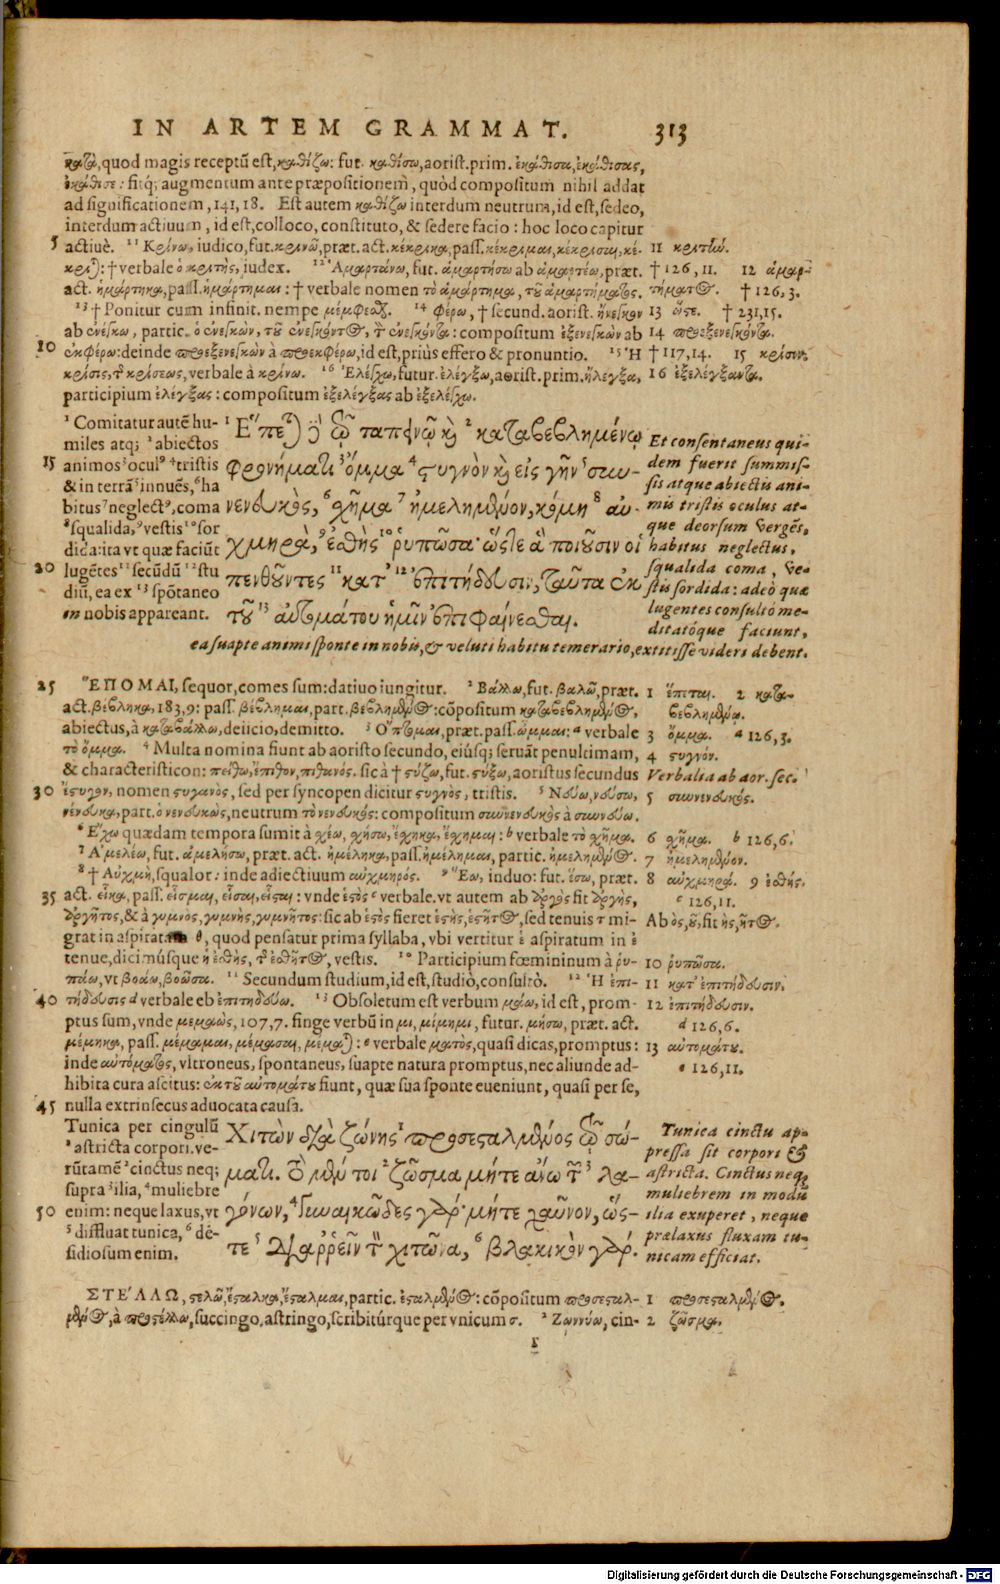 IN ARTEM GRAMMAT. 313
κατὰ, quod magis receptũ est, καθίζω: fut. καθίσω, aorist. prim. ἐκάθισα, ἐκάθισας,
ἐκάθισε: fitq; augmentum ante præpositionem, quòd compositum nihil addat
ad significationem, 141, 18. Est autem καθίζω interdum neutrum, id est, sedeo,
interdum actiuum, id est, colloco, constituto, & sedere facio: hoc loco capitur
5 actiuè. 11 Κρίνω, iudico, fut. κρινῶ, præt. act. κέκρικα, pass. κέκριμαι, κέκρισαι, κέ-
κριται: † verbale ὁ κριτὴς, iudex. 12 Ἁμαρτάνω, fut. ἁμαρτήσω ab ἁμαρτέω, præt.
act. ἡμάρτηκα, pass. ἡμάρτημαι: † verbale nomen τὸ ἁμάρτημα, τοῦ ἁμαρτήματος.
13 † Ponitur cum infinit. nempe μέμφεσθαι. 14 φέρω, † secund. aorist. ἤνεσκον
ab ἐνέσκω, partic. ὁ ἐνεσκὼν, τοῦ ἐνεσκόντος, τὸν ἐνεσκόντα: compositum ἐξενεσκὼν ab
10 ἐκφέρω: deinde προεξενεσκὼν à προεκφέρω, id est, priùs effero & pronuntio. 15 Ἡ
κρίσις, τῆς κρίσεως, verbale à κρίνω. 16 Ἐλέγχω, futur. ἐλέγξω, aorist. prim. ἤλεγξα,
participium ἐλέγξας: compositum ἐξελέγξας ab ἐξελέγχω.
11 κριτὴν.
† 126, 11. 12 ἁμαρ-
τήματος. † 126, 3.
13 ὥστε. † 231, 15.
14 προεξενεσκόντα.
† 117, 14. 15 κρίσιν.
16 ἐξελέγξαντα.
1 Comitatur autẽ hu-
miles atq; 2 abiectos
15 animos 3 ocul9 4 tristis
& in terrã 5 innuẽs, 6 ha
bitus 7 neglect9, coma
8 squalida, 9 vestis 10 sor
dida: ita vt quæ faciũt
20 lugẽtes 11 secũdũ 12 stu
diũ, ea ex 13 spõtaneo
in nobis appareant.
1 Ἕπεται δὲ τῷ ταπεινῷ καὶ 2 καταβεβλημένῳ
φρονήματι 3 ὄμμα 4 στυγνὸν καὶ εἰς γῆν 5 συν-
νενευκὸς, 6 σχῆμα 7 ἠμελημένον, κόμη 8 αὐ-
χμηρὰ, 9 ἐσθὴς 10 ῥυπῶσα· ὥστε ἃ ποιοῦσιν οἱ
πενθοῦντες 11 κατ' 12 ἐπιτήδευσιν, ταῦτα ἐκ
τοῦ 13 αὐτομάτου ἡμῖν ἐπιφαίνεσθαι.
Et consentaneus qui-
dem fuerit summis-
sis atque abiectis ani-
mis tristis oculus at-
que deorsum vergẽs,
habitus neglectus,
squalida coma, ve-
stis sordida: adeò quæ
lugentes consultò me-
ditatóque faciunt,
ea suapte animi sponte in nobis, & veluti habitu temerario, extitisse videri debent.
25 ἝΠΟΜΑΙ, sequor, comes sum: datiuo iungitur. 2 Βάλλω, fut. βαλῶ, præt.
act. βέβληκα, 183, 9: pass. βέβλημαι, part. βεβλημένος: cõpositum καταβεβλημένος,
abiectus, à καταβάλλω, deiicio, demitto. 3 Ὄπτομαι, præt. pass. ὦμμαι: a verbale
τὸ ὄμμα. 4 Multa nomina fiunt ab aoristo secundo, eiúsq; seruãt penultimam,
& characteristicon: πείθω, ἔπιθον, πιθανός. sic à † στύζω, fut. στύξω, aoristus secundus
30 ἔστυγον, nomen στυγανὸς, sed per syncopen dicitur στυγνὸς, tristis. 5 Νεύω, νεύσω,
νένευκα, part. ὁ νενευκὼς, neutrum τὸ νενευκός: compositum συννενευκὸς à συννεύω.
6 Ἔχω quædam tempora sumit à χέω, χήσω, ἔσχηκα, ἔσχημαι: b verbale τὸ σχῆμα.
7 Ἀμελέω, fut. ἀμελήσω, præt. act. ἠμέληκα, pass. ἠμέλημαι, partic. ἠμελημένος.
8 † Αὐχμὴ, squalor: inde adiectiuum αὐχμηρός. 9 Ἕω, induo: fut. ἕσω, præt.
35 act. εἷκα, pass. εἷσμαι, εἷσαι, εἷσται: vnde ἑστὸς c verbale. vt autem ab ἀργὸς fit ἀργὴς,
ἀργῆτος, & à γυμνὸς, γυμνὴς, γυμνῆτος: sic ab ἑστὸς fieret ἑστὴς, ἑστῆτος, sed tenuis τ mi-
grat in aspiratam θ, quod pensatur prima syllaba, vbi vertitur ἑ aspiratum in ἐ
tenue, dicimúsque ἡ ἐσθὴς, τῆς ἐσθῆτος, vestis. 10 Participium fœmininum à ῥυ-
πάω, vt βοάω, βοῶσα. 11 Secundum studium, id est, studiò, consultò. 12 Ἡ ἐπι-
40 τήδευσις d verbale eb ἐπιτηδεύω. 13 Obsoletum est verbum μάω, id est, prom-
ptus sum, vnde μεμαὼς, 107, 7. finge verbũ in μι, μίμημι, futur. μήσω, præt. act.
μέμηκα, pass. μέμαμαι, μέμασαι, μέμαται: e verbale ματὸς, quasi dicas, promptus:
inde αὐτόματος, vltroneus, spontaneus, suapte natura promptus, nec aliunde ad-
hibita cura ascitus: ἐκ τοῦ αὐτομάτου fiunt, quæ sua sponte eueniunt, quasi per se,
45 nulla extrinsecus aduocata causa.
1 ἕπεται. 2 κατα-
βεβλημένῳ.
3 ὄμμα. a 126, 3.
4 στυγνόν.
Verbalia ab aor. sec.
5 συννενευκός.
6 σχῆμα. b 126, 6.
7 ἠμελημένον.
8 αὐχμηρά. 9 ἐσθής.
c 126, 11.
Ab ὸς, οῦ, fit ὴς, ῆτος.
10 ῥυπῶσα.
11 κατ' ἐπιτήδευσιν.
12 ἐπιτήδευσιν.
d 126, 6.
13 αὐτομάτου.
e 126, 11.
Tunica per cingulũ
1 astricta corpori. ve-
rũtamẽ 2 cinctus neq;
supra 3 ilia, 4 muliebre
50 enim: neque laxus, vt
5 diffluat tunica, 6 dē-
sidiosum enim.
Χιτὼν διὰ ζώνης 1 προσεσταλμένος τῷ σώ-
ματι. Τὸ μέντοι 2 ζῶσμα μήτε ἄνω τῶν 3 λα-
γόνων, 4 γυναικῶδες γάρ· μήτε χαῦνον, ὥσ-
τε 5 διαῤῥεῖν τὸν χιτῶνα, 6 βλακικὸν γάρ.
Tunica cinctu ap-
pressa sit corpori &
astricta. Cinctus neq;
muliebrem in modũ
ilia exuperet, neque
prælaxus fluxam tu-
nicam efficiat.
ΣΤΕΛΛΩ, στελῶ, ἔσταλκα, ἔσταλμαι, partic. ἐσταλμένος: cõpositum προσεσταλ-
μένος, à προστέλλω, succingo, astringo, scribitúrque per vnicum σ. 2 Ζωννύω, cin-
1 προσεσταλμένος.
2 ζῶσμα.
Digitalisierung gefördert durch die Deutsche Forschungsgemeinschaft - DFG